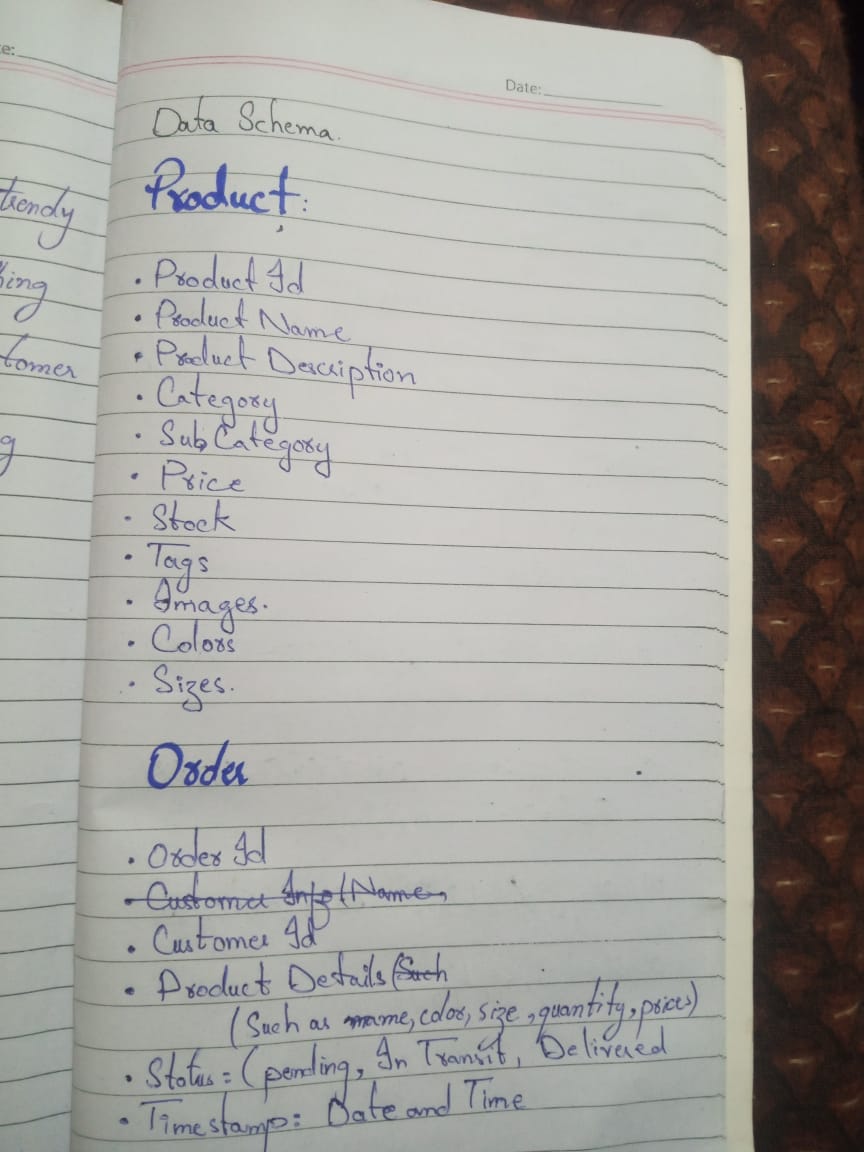 e:
Date:
Data Schema.
trendy
tomer
g
Product:
• Product Id
• Product Name
• Product Description
• Category
• Sub Category
• Price
• Stock
• Tags
• Images.
• Colors
• Sizes.
Order
• Order Id
• Customer Info (Name,
• Customer Id
• Product Details (Such
(Such as name, color, size, quantity, prices)
• Status = (pending, In Transit, Delivered
• Timestamp: Date and Time